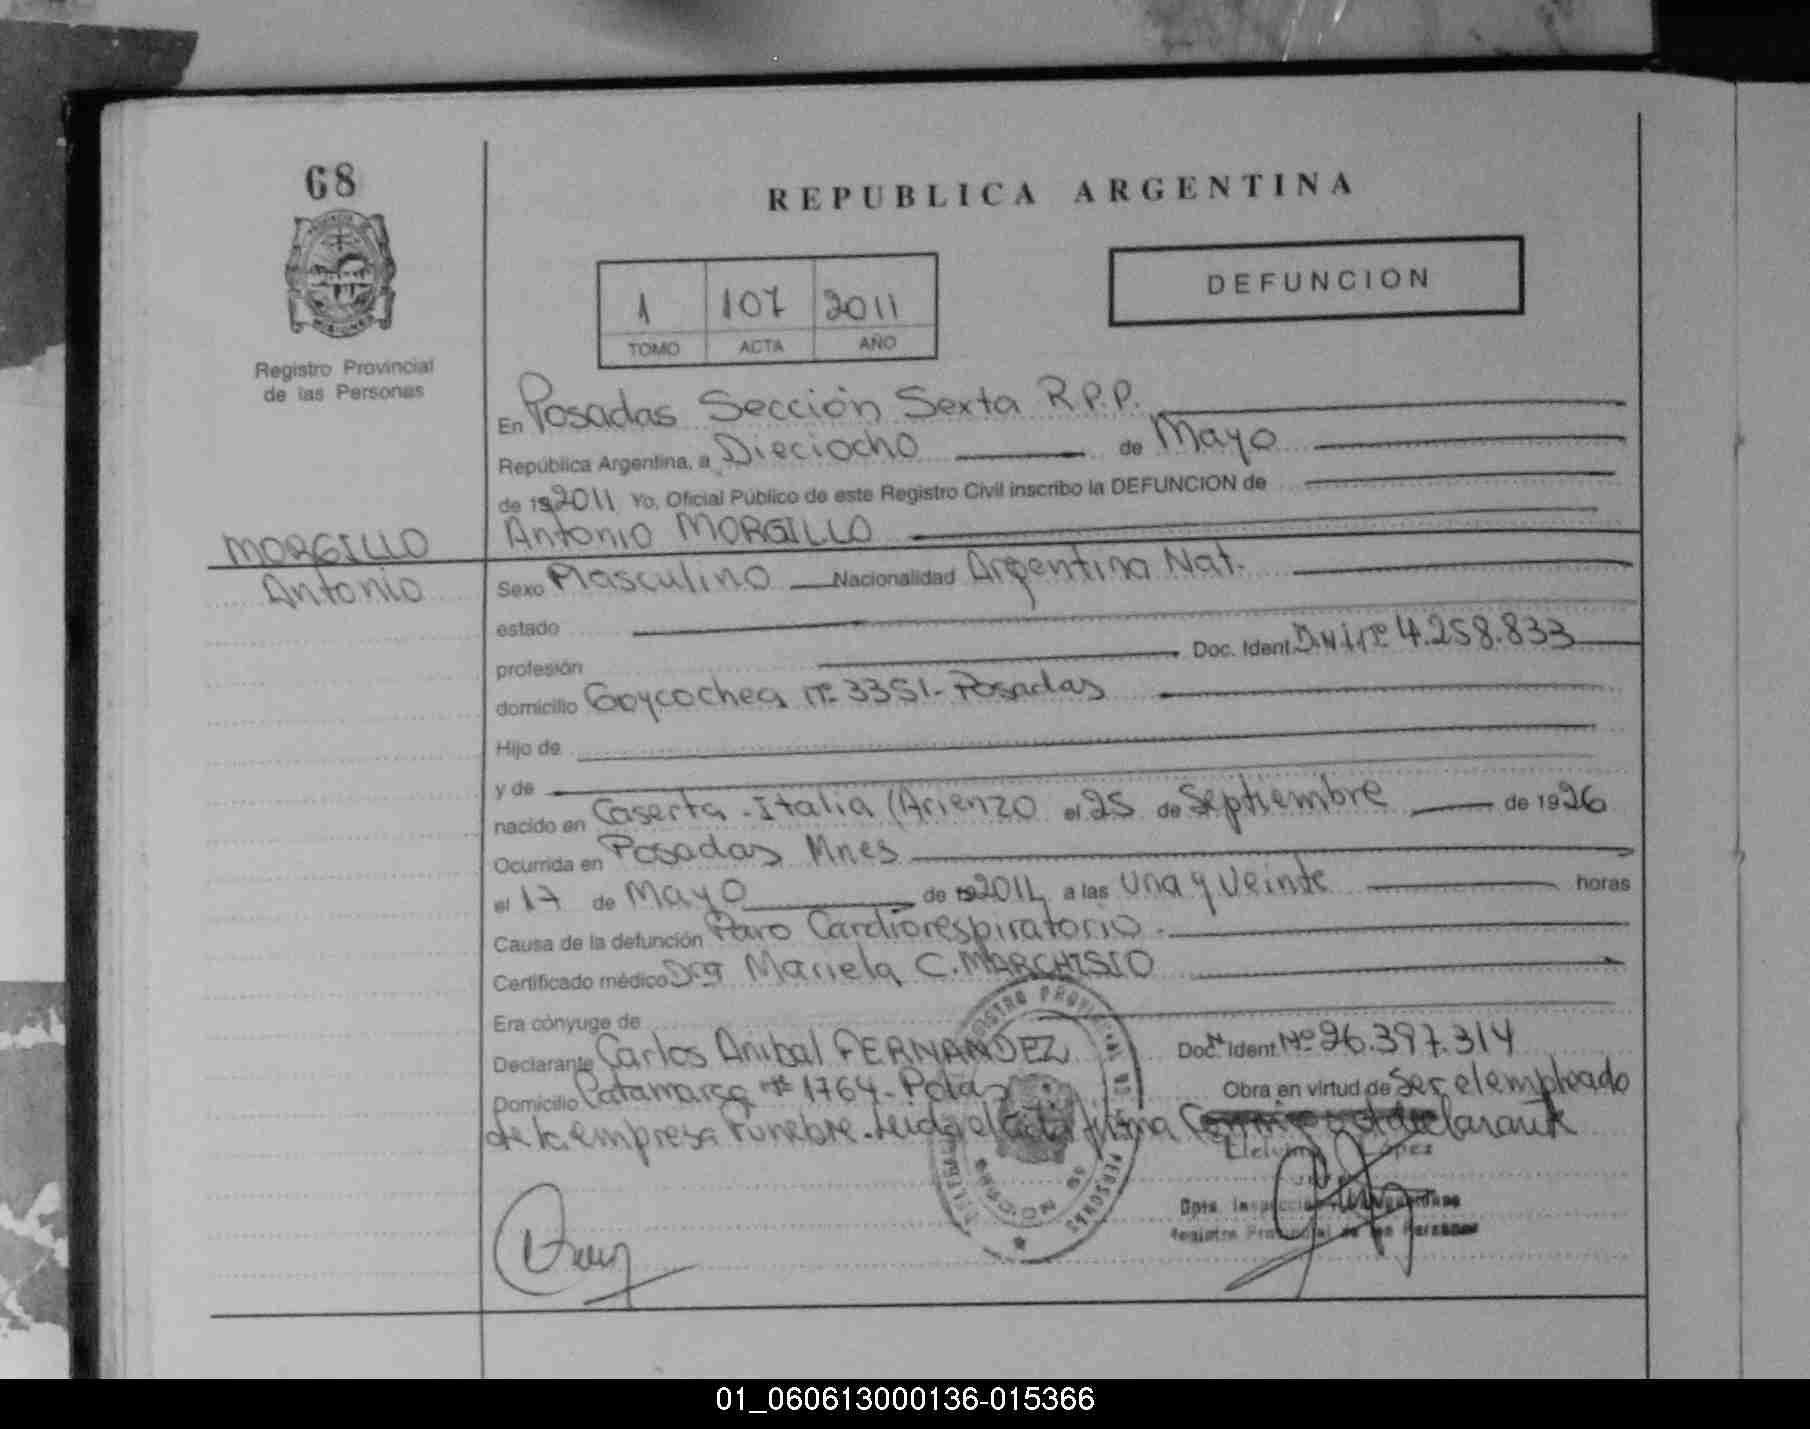 68
REPUBLICA ARGENTINA
1 107 2011
TOMO ACTA AÑO
DEFUNCION
Registro Provincial
de las Personas
En Posadas Sección Sexta R.P.P.
República Argentina, a Dieciocho de Mayo
de 192011 Yo, Oficial Público de este Registro Civil inscribo la DEFUNCION de
MORGILLO Antonio MORGILLO
Antonio Sexo Masculino Nacionalidad Argentina Nat.
estado
profesión Doc. Ident. D.N.I. Nº 4.258.833
domicilio Goycochea Nº 3351 - Posadas
Hijo de
y de
nacido en Caserta - Italia (Arienzo el 25 de Septiembre de 1926
Ocurrida en Posadas Mnes
el 17 de Mayo de 2011 a las una y veinte horas
Causa de la defunción Paro Cardiorespiratorio.
Certificado médico Dra Mariela C. MARCHISIO
Era cónyuge de
Declarante Carlos Anibal FERNANDEZ Doc. Ident. Nº 26.397.314
Domicilio Catamarca Nº 1764 - Pdas Obra en virtud de ser el empleado
de la empresa Funebre. Leida el acta firma declarante
López
Dpto.
Registro Provincial de las Personas
01_060613000136-015366